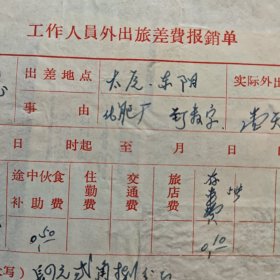 工作人員外出旅差費报銷单
出差地点 太原．东阳 实际外出
事由 化肥厂
日 时起至 月 日
途中伙食补助費 住勤費 交通費 旅店費 存車費
0.50 0.10
写) 貳角捌分